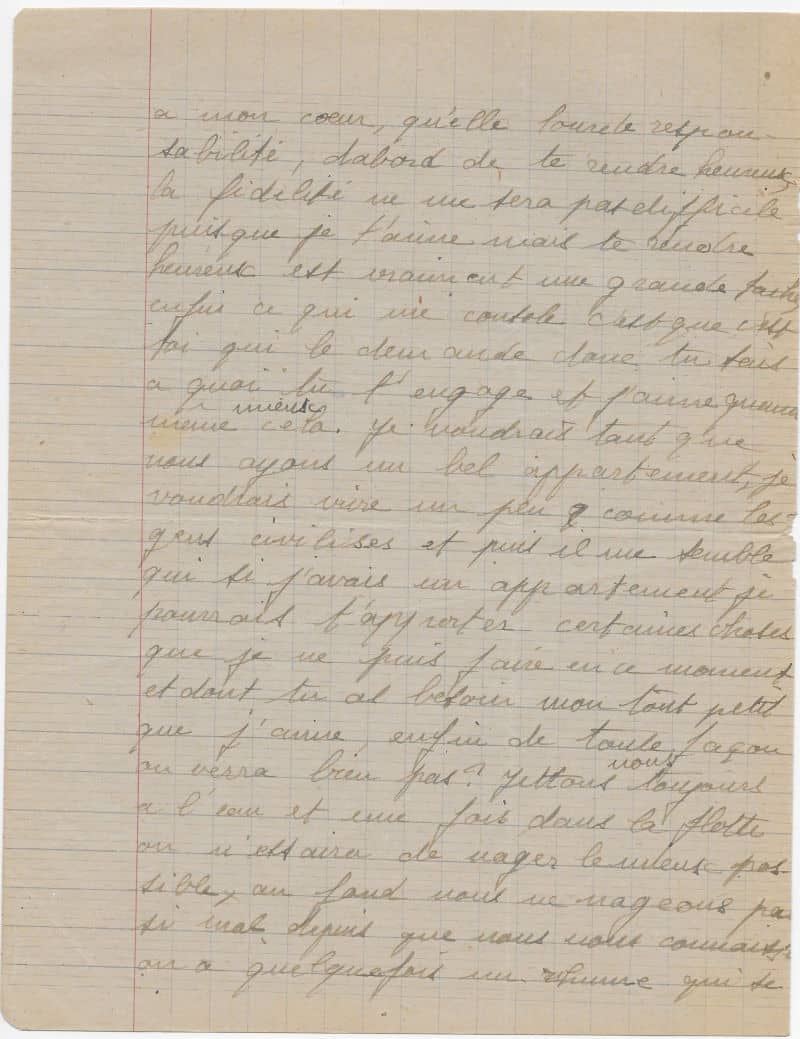 a mon cœur, qu'elle lourde respon-
sabilité, dabord de te rendre heureux,
la fidélité ne me sera pas difficile
puisque je t'aime mais te rendre
heureux est vraiment une grande tache,
enfin ce qui me console c'est que c'est
toi qui le demande donc tu sais
a quoi tu t'engage et j'aime quand
mieux
même cela. Je voudrais tant que
nous ayons un bel appartement, je
voudrais vivre un peu comme les
gens civilises et puis il me semble
qui si j'avais un appartement je
pourrais t'apporter certaines choses
que je ne puis faire en ce moment
et dont tu as besoin mon tout petit
que j'aime, enfin de toute façon
on verra bien pas? Jettons nous toujours
a l'eau et une fois dans la flotte
on n'essaira de nager le mieux pos-
sible, au fond nous ne nageons pas
si mal depuis que nous nous
on a quelquefois un rhume qui se